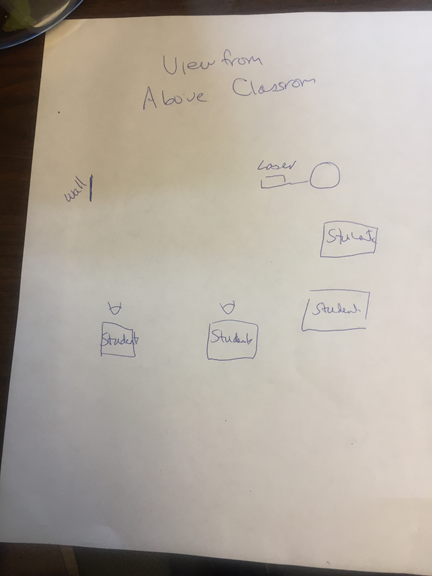 View from
Above Classrom
Laser
wall
Students
Student
Student
Students